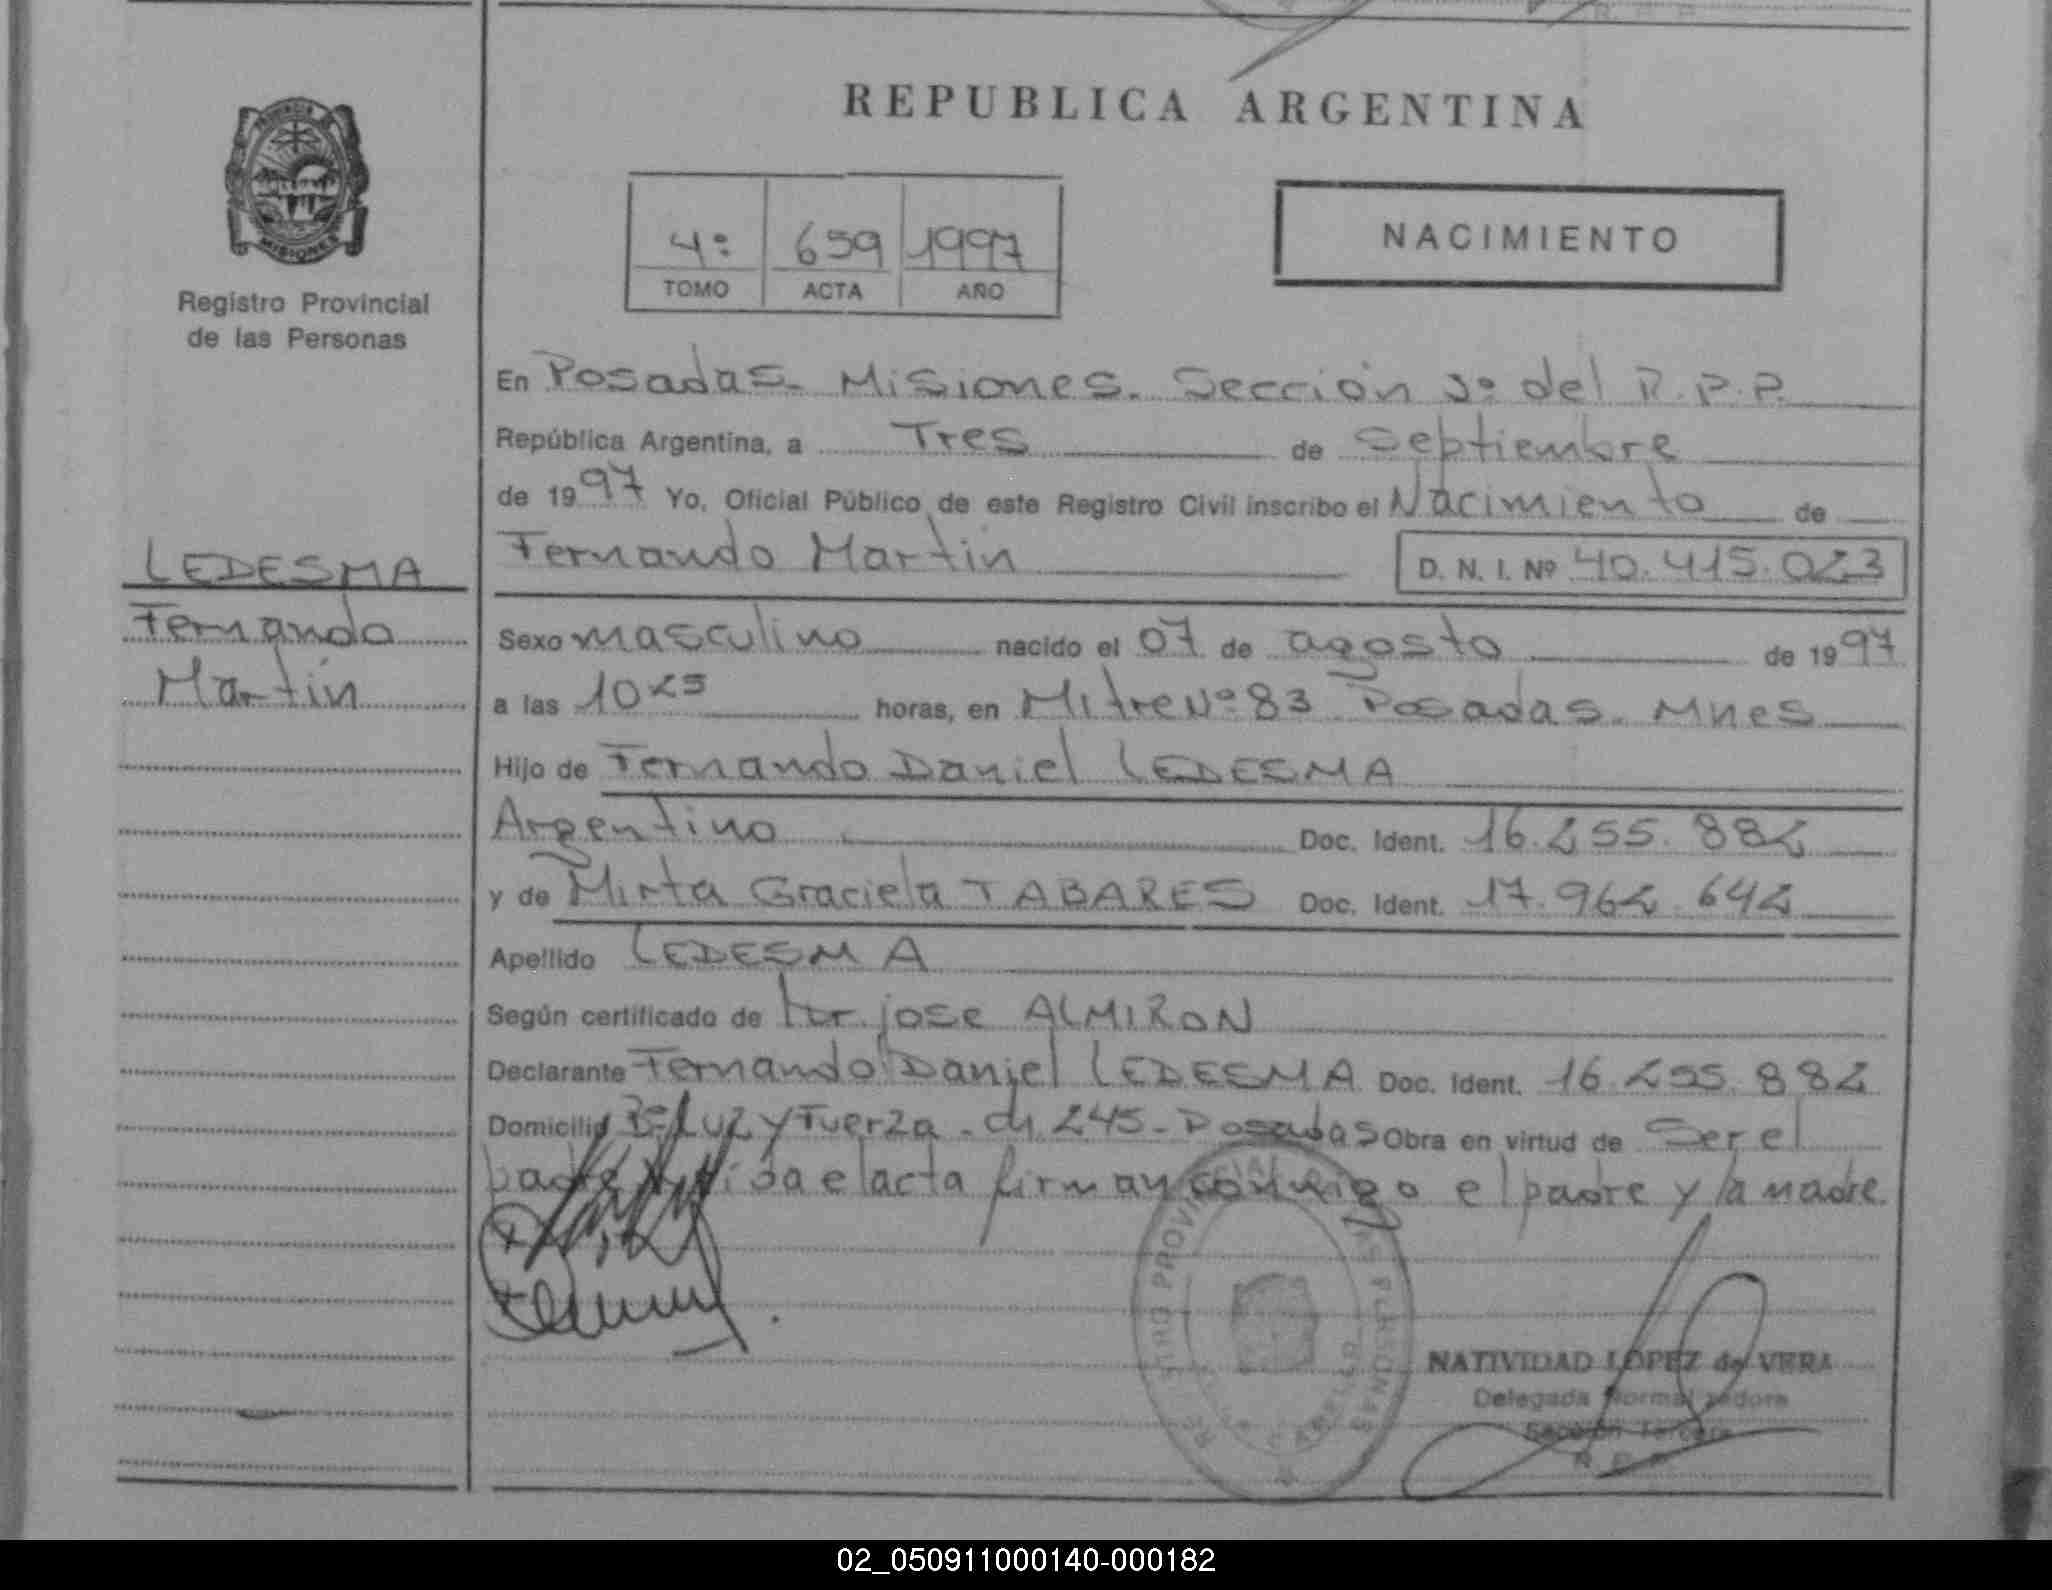 REPUBLICA ARGENTINA
PROVINCIA DE
MISIONES
Registro Provincial
de las Personas
4º 659 1997
TOMO ACTA AÑO
NACIMIENTO
En Posadas. Misiones. Sección 3º del R.P.P.
República Argentina, a Tres de Septiembre
de 1997 Yo, Oficial Público de este Registro Civil inscribo el Nacimiento de
Fernando Martin D. N. I. Nº 40.415.023
LEDESMA
Fernando
Martin
Sexo masculino nacido el 07 de agosto de 1997
a las 10 25 horas, en Mitre Nº 83 Posadas. Mnes
Hijo de Fernando Daniel LEDESMA
Argentino Doc. Ident. 16.255.882
y de Mirta Graciela TABARES Doc. Ident. 17.962.642
Apellido LEDESMA
Según certificado de jose ALMIRON
Declarante Fernando Daniel LEDESMA Doc. Ident. 16.255.882
Domicilio Bº Luz y Fuerza. ch 245. Posadas Obra en virtud de Ser el
padre el acta firman conmigo el padre y la madre.
REGISTRO PROVINCIAL DE LAS PERSONAS
NATIVIDAD LOPEZ de VERA
Delegada Normalizadora
Sección Tercera
R. P. P.
R. P. P.
02_050911000140-000182